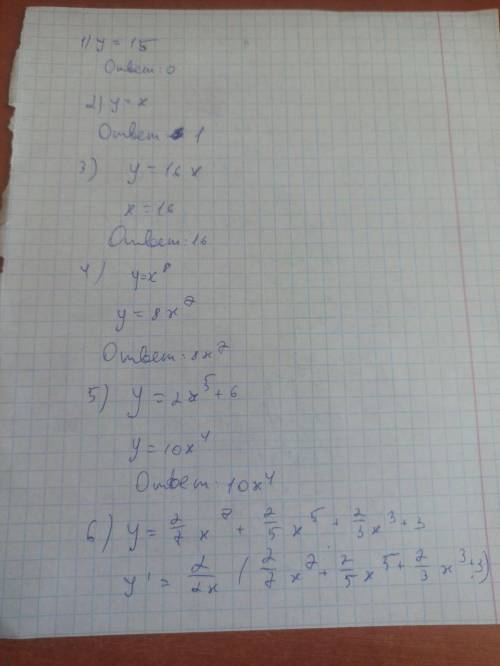 1) y = 15
Ответ: 0
2) y = x
Ответ 1
3) y = 16x
x = 16
Ответ: 16
4) y = x⁸
y = 8x⁷
Ответ: 8x⁷
5) y = 2x⁵ + 6
y = 10x⁴
Ответ: 10x⁴
6) y = 2/7 x⁷ + 2/5 x⁵ + 2/3 x³ + 3
y' = d/dx (2/7 x⁷ + 2/5 x⁵ + 2/3 x³ + 3)